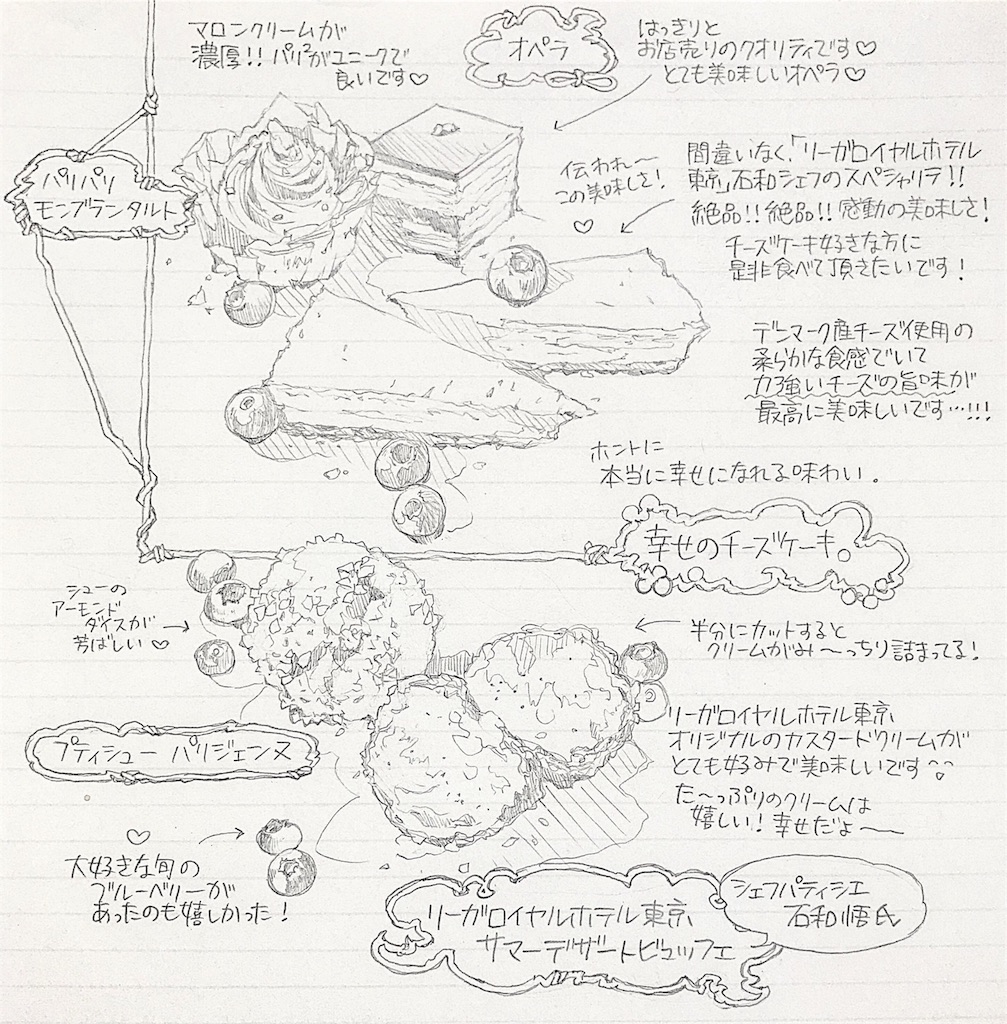 マロンクリームが
濃厚!! パリパリがユニークで
良いです♡
オペラ
はっきりと
お店売りのクオリティです♡
とても美味しいオペラ♡
パリパリ
モンブランタルト
伝われ〜
この美味しさ!
♡
間違いなく、「リーガロイヤルホテル
東京」石和シェフのスペシャリテ!!
絶品!! 絶品!! 感動の美味しさ!
チーズケーキ好きな方に
是非食べて頂きたいです!
デンマーク産チーズ使用の
柔らかな食感でいて
力強いチーズの旨味が
最高に美味しいです…!!!
ホントに
本当に幸せになれる味わい。
幸せのチーズケーキ。
シューの
アーモンド
ダイスが
芳ばしい♡
半分にカットすると
クリームがみ〜っちり詰まってる!
プティシュー パリジェンヌ
リーガロイヤルホテル東京
オリジナルのカスタードクリームが
とても好みで美味しいです
た〜っぷりのクリームは
嬉しい! 幸せだよ〜
♡
大好きな旬の
ブルーベリーが
あったのも嬉しかった!
リーガロイヤルホテル東京
サマーデザートビュッフェ
シェフパティシエ
石和悟氏